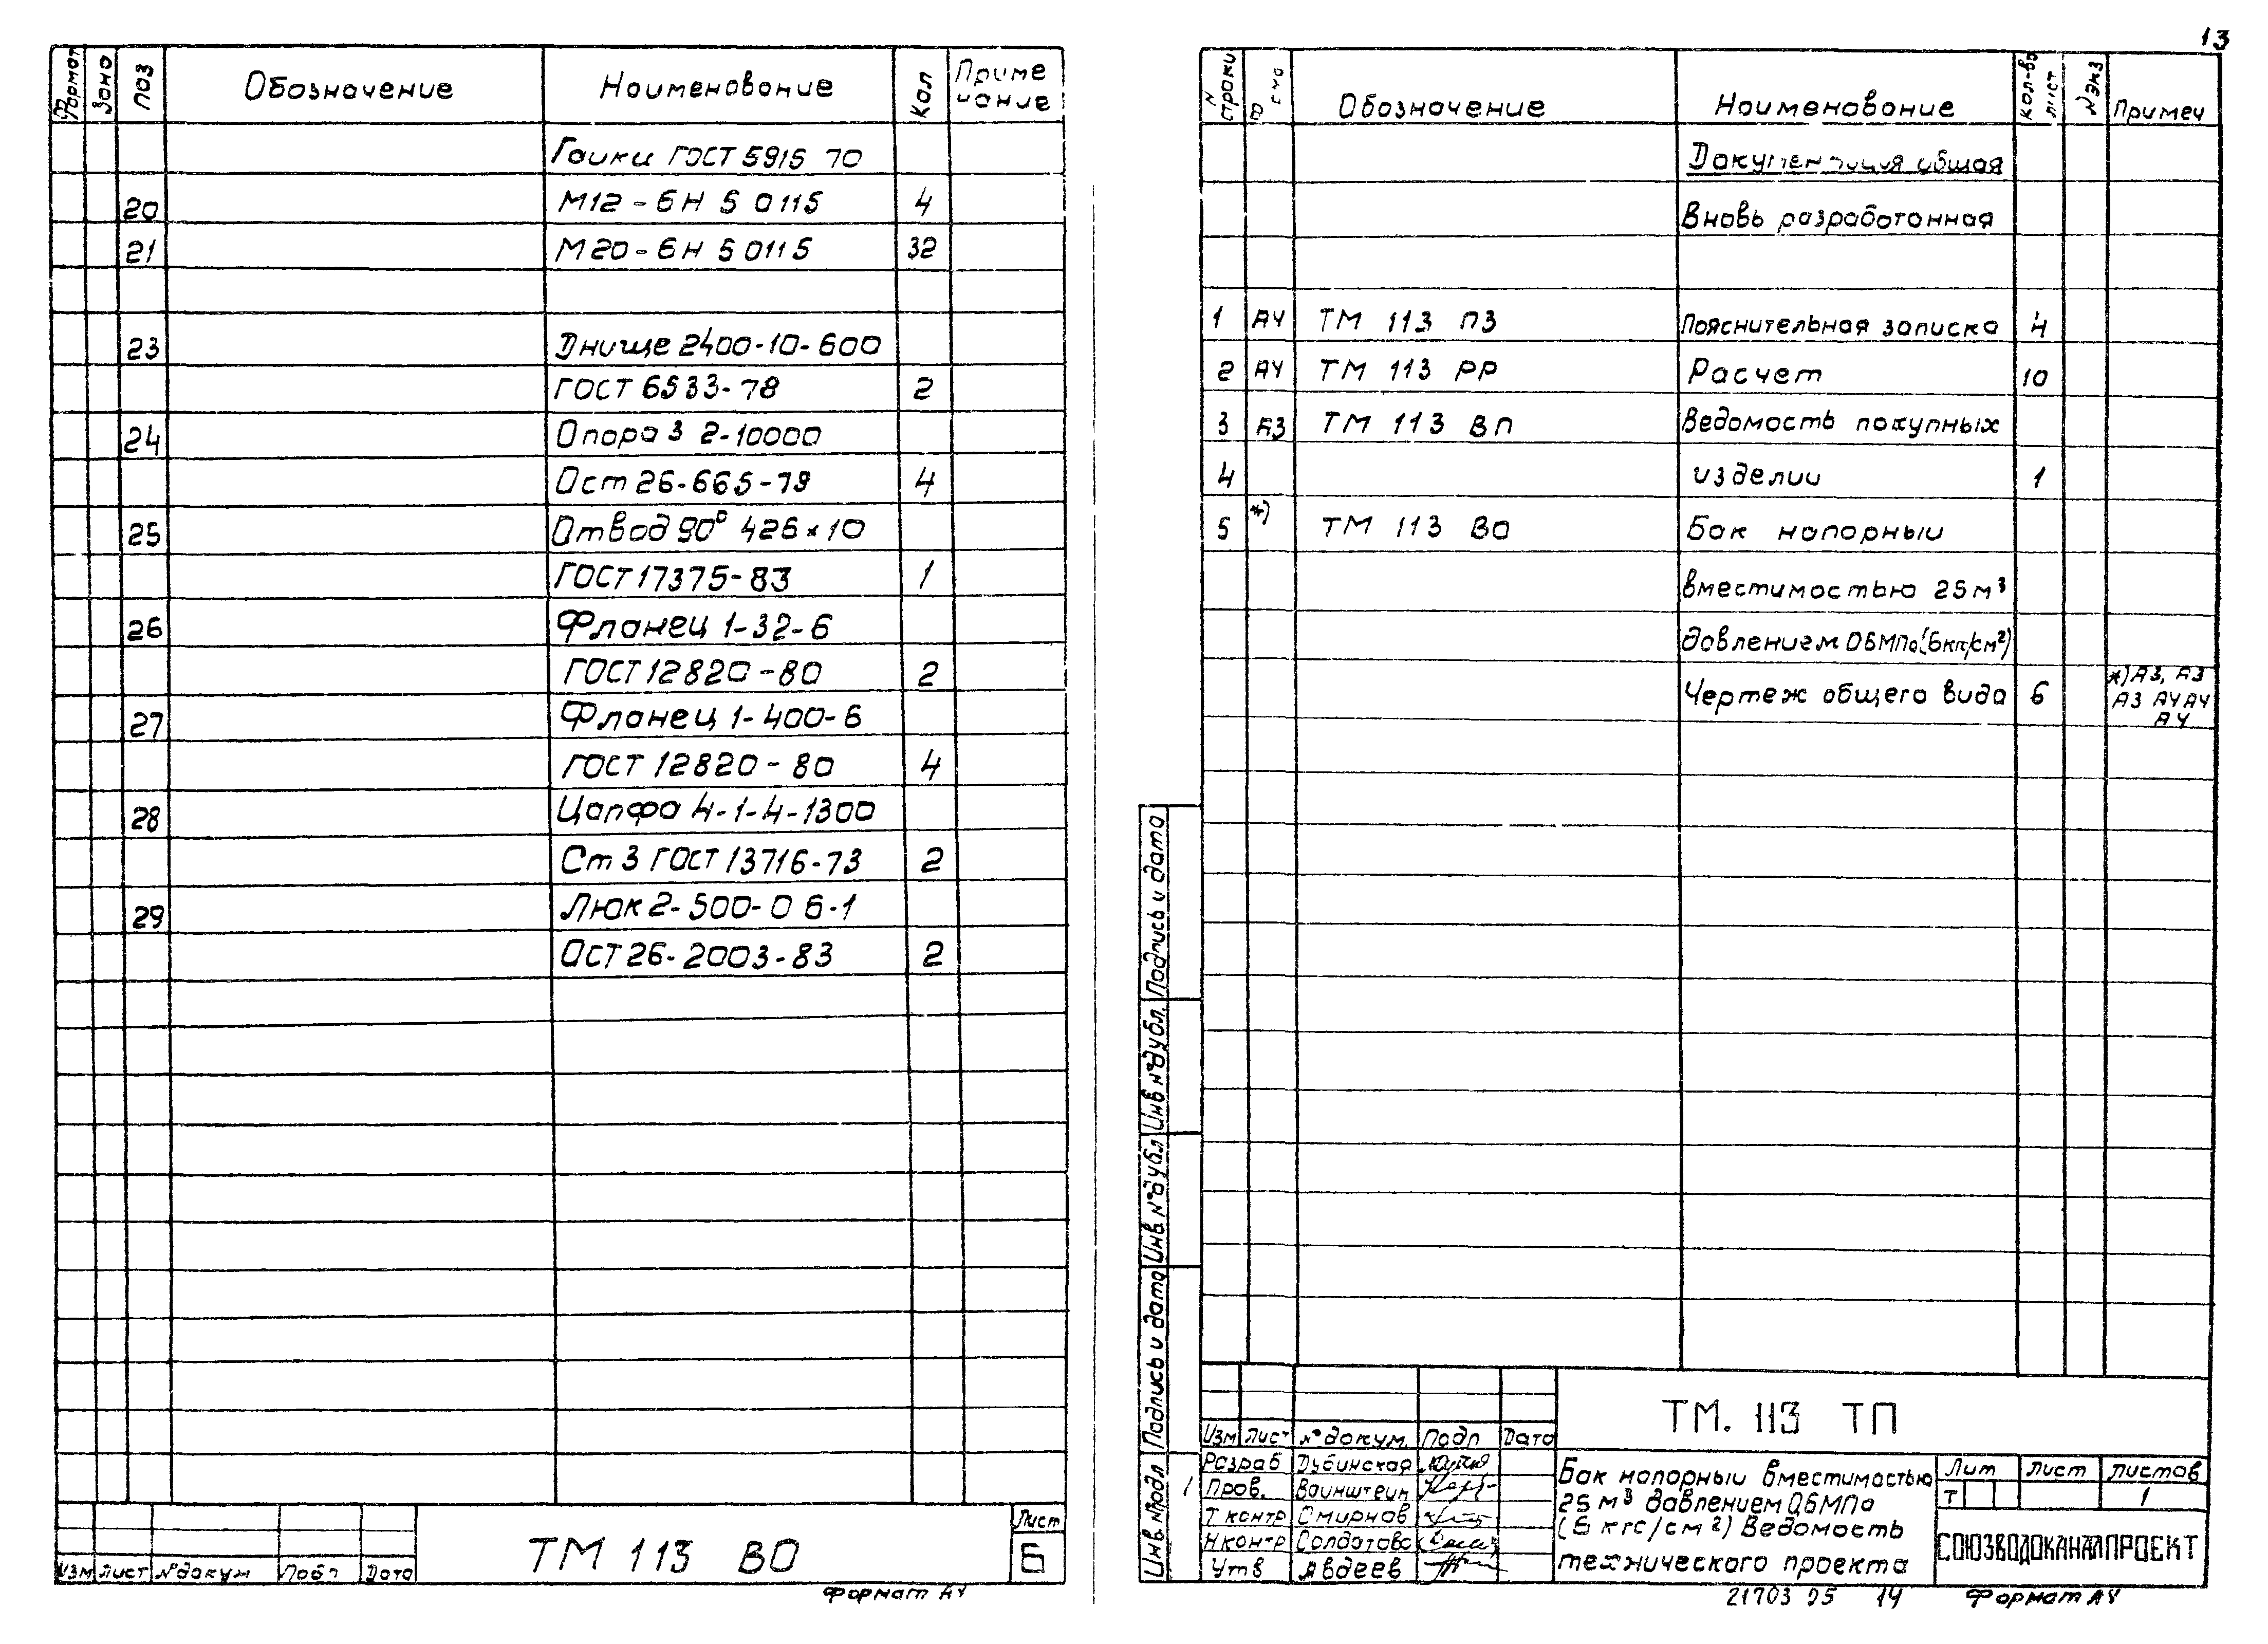 13
Формат Зона Поз Обозначение Наименование Кол Приме
чание
Гайки ГОСТ 5915 70
20 М12-6Н 5 0115 4
21 М20-6Н 5 0115 32
23 Днище 2400-10-600
ГОСТ 6533-78 2
24 Опора 3 2-10000
Ост 26-665-79 4
25 Отвод 90° 426×10
ГОСТ 17375-83 1
26 Фланец 1-32-6
ГОСТ 12820-80 2
27 Фланец 1-400-6
ГОСТ 12820-80 4
28 Цапфа 4-1-4-1300
Ст 3 ГОСТ 13716-73 2
29 Люк 2-500-0 6-1
Ост 26-2003-83 2
Изм Лист № докум Подп Дата
ТМ 113 ВО
Лист
6
Формат А4
N строки Обозначение Наименование Кол-во лист N экз Примеч
Документация общая
Вновь разработанная
1 А4 ТМ 113 ПЗ Пояснительная записка 4
2 А4 ТМ 113 РР Расчет 10
3 А3 ТМ 113 ВП Ведомость покупных
4 изделий 1
5 *) ТМ 113 ВО Бак напорный
вместимостью 25 м³
давлением 0 6 МПа (6 кгс/см²)
Чертеж общего вида 6 *) А3, А3
А3 А4 А4
А4
Подпись и дата
Инв № дубл.
Инв № дубл
Подпись и дата
Инв № подл
ТМ. 113 ТП
Изм Лист № докум. Подп Дата
Разраб Дубинская
1 Пров. Вайнштейн
Т контр Смирнов
Н контр Солдатова
Утв Авдеев
Бак напорный вместимостью
25 м³ давлением 0,6 МПа
(6 кгс/см²) Ведомость
технического проекта
Лит Лист Листов
Т 1
СОЮЗВОДОКАНАЛПРОЕКТ
21703 05 14 Формат А4